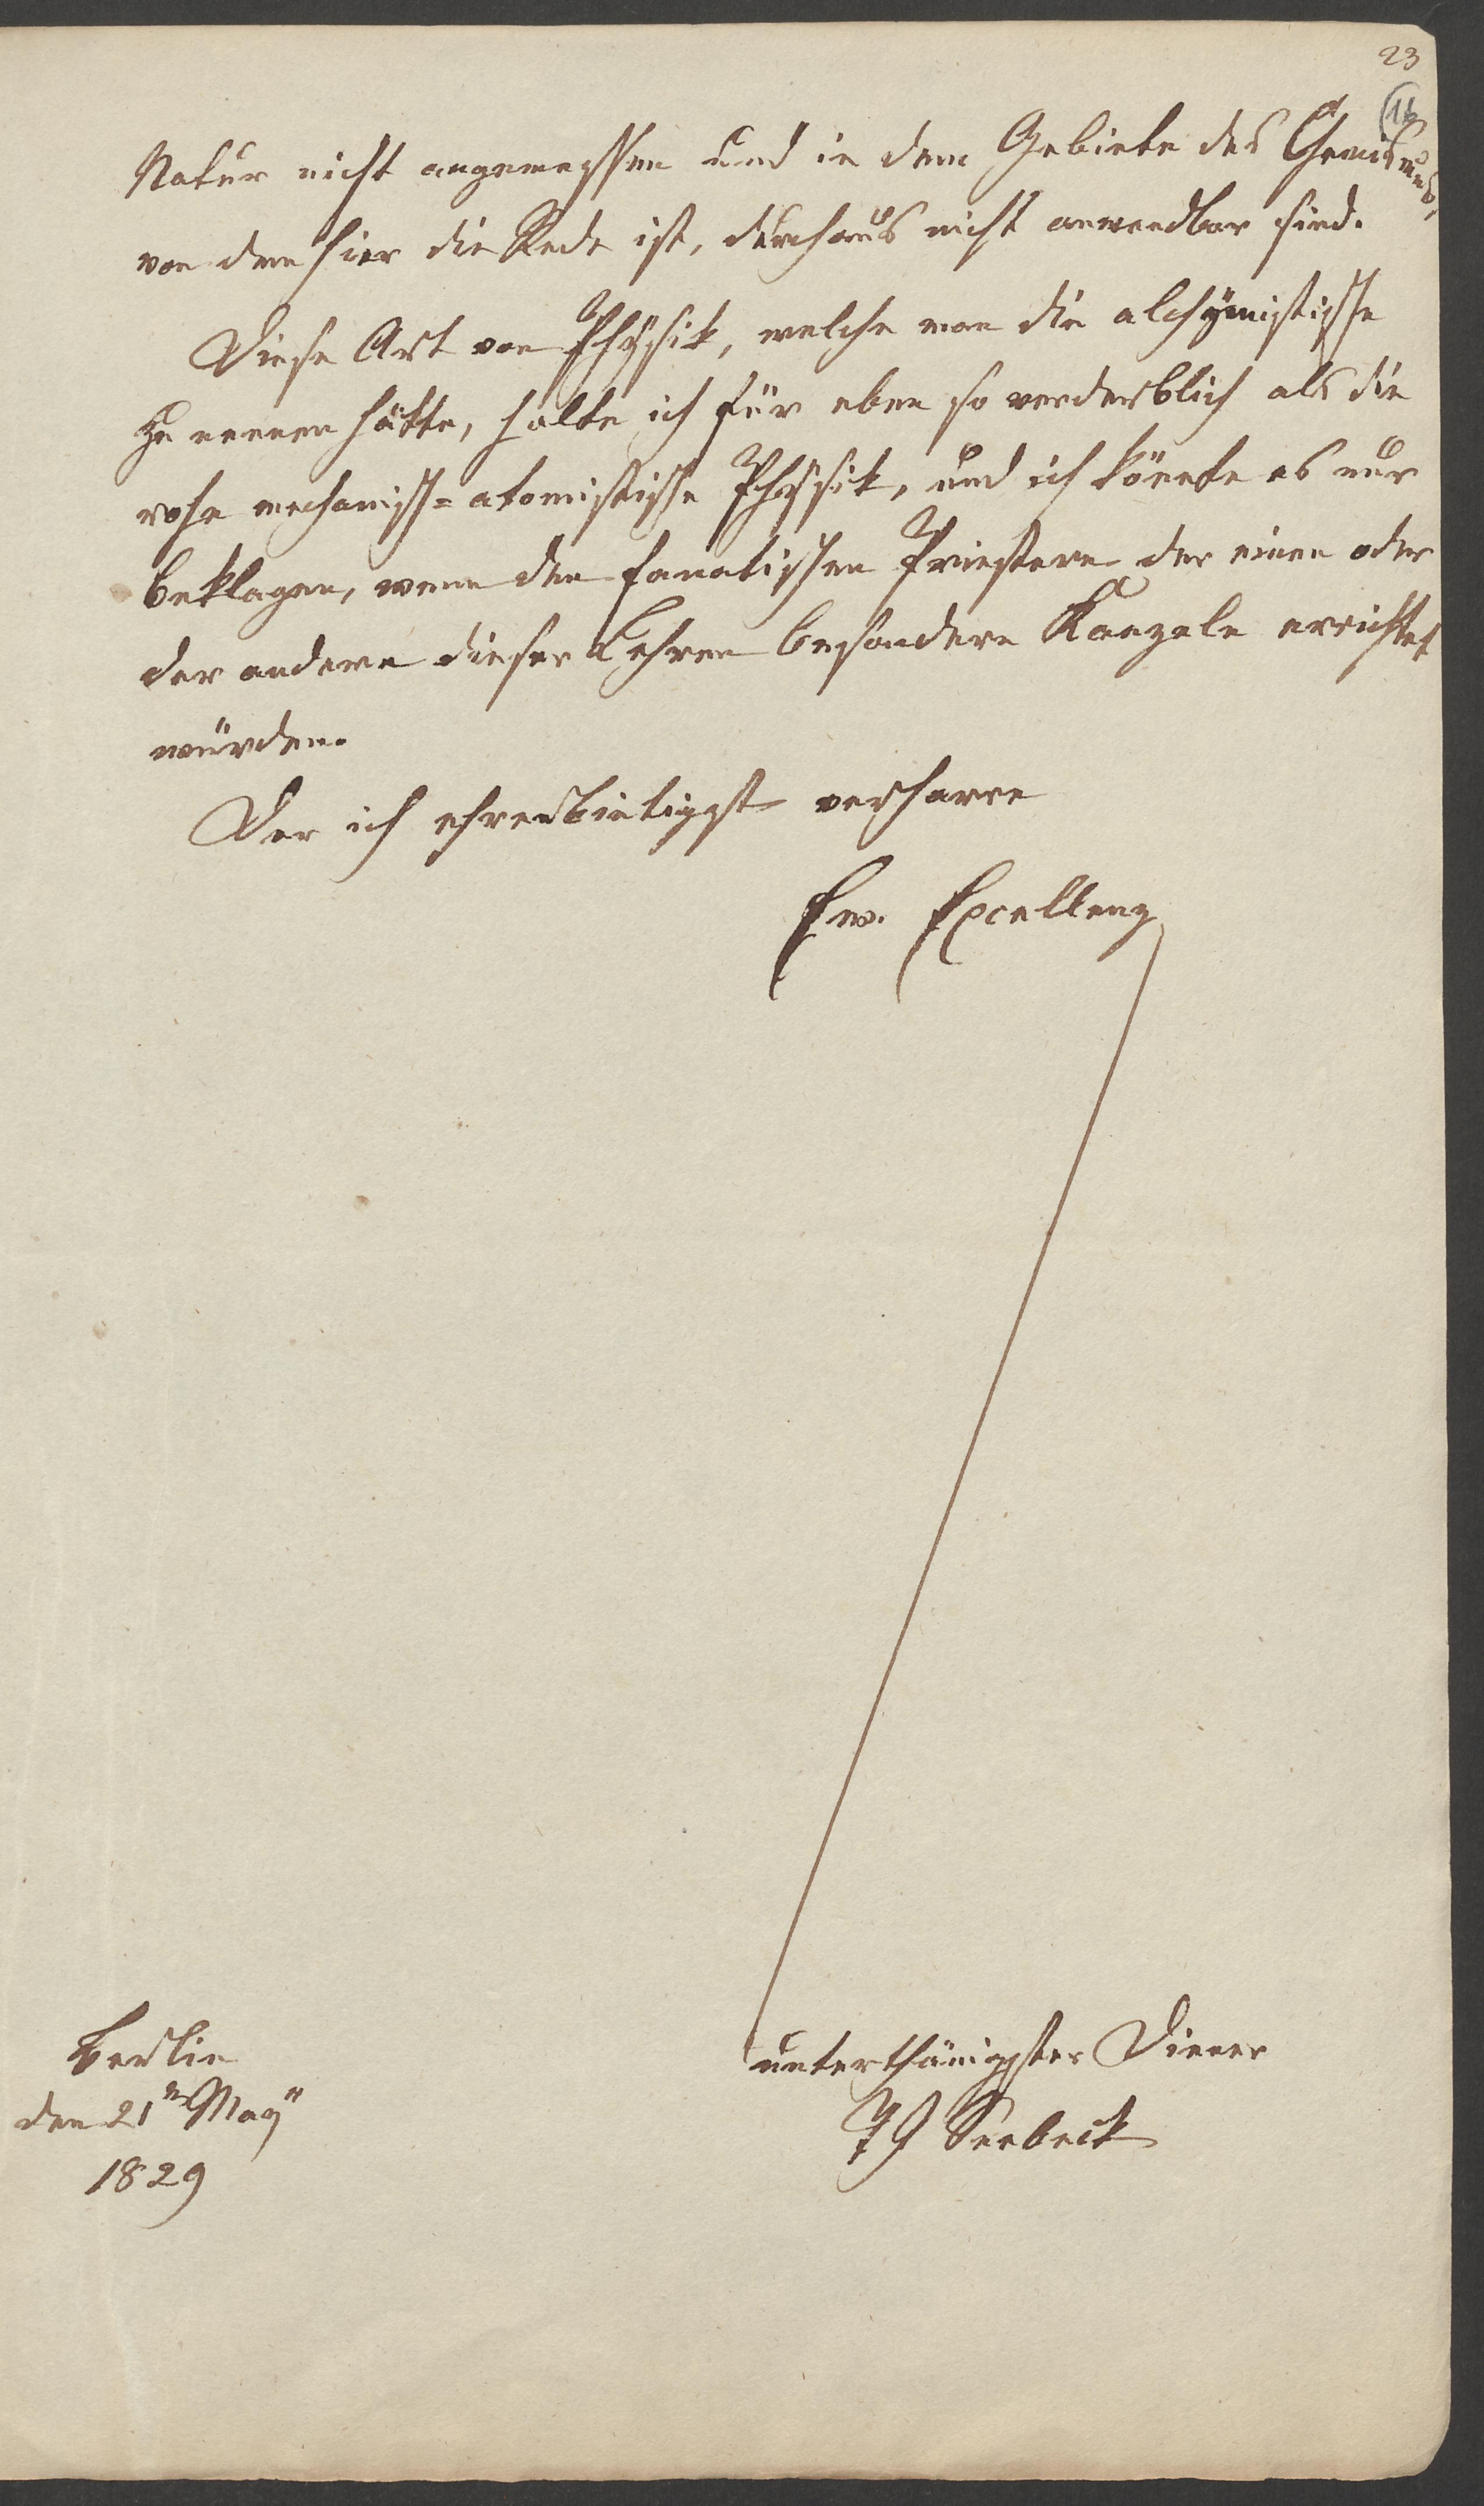 23
Natur nicht angemessen und in dem Gebiete des Chemismus,
von dem hier die Rede ist, durchaus nicht anwendbar sind.
Diese Art von Physik, welche man die alchymistische
zu nennen hätte, halte ich für eben so verderblich als die
rohe mechanisch=atomistische Physik, und ich könnte es nur
beklagen, wenn den fanatischen Priestern der einen oder
der andern dieser Lehren besondere Kanzeln errichtet
würden.
Der ich ehrerbietigst verharre
Ew. Excellenz
unterthänigster Diener
TJ Seebeck
Berlin
den 21n May
1829